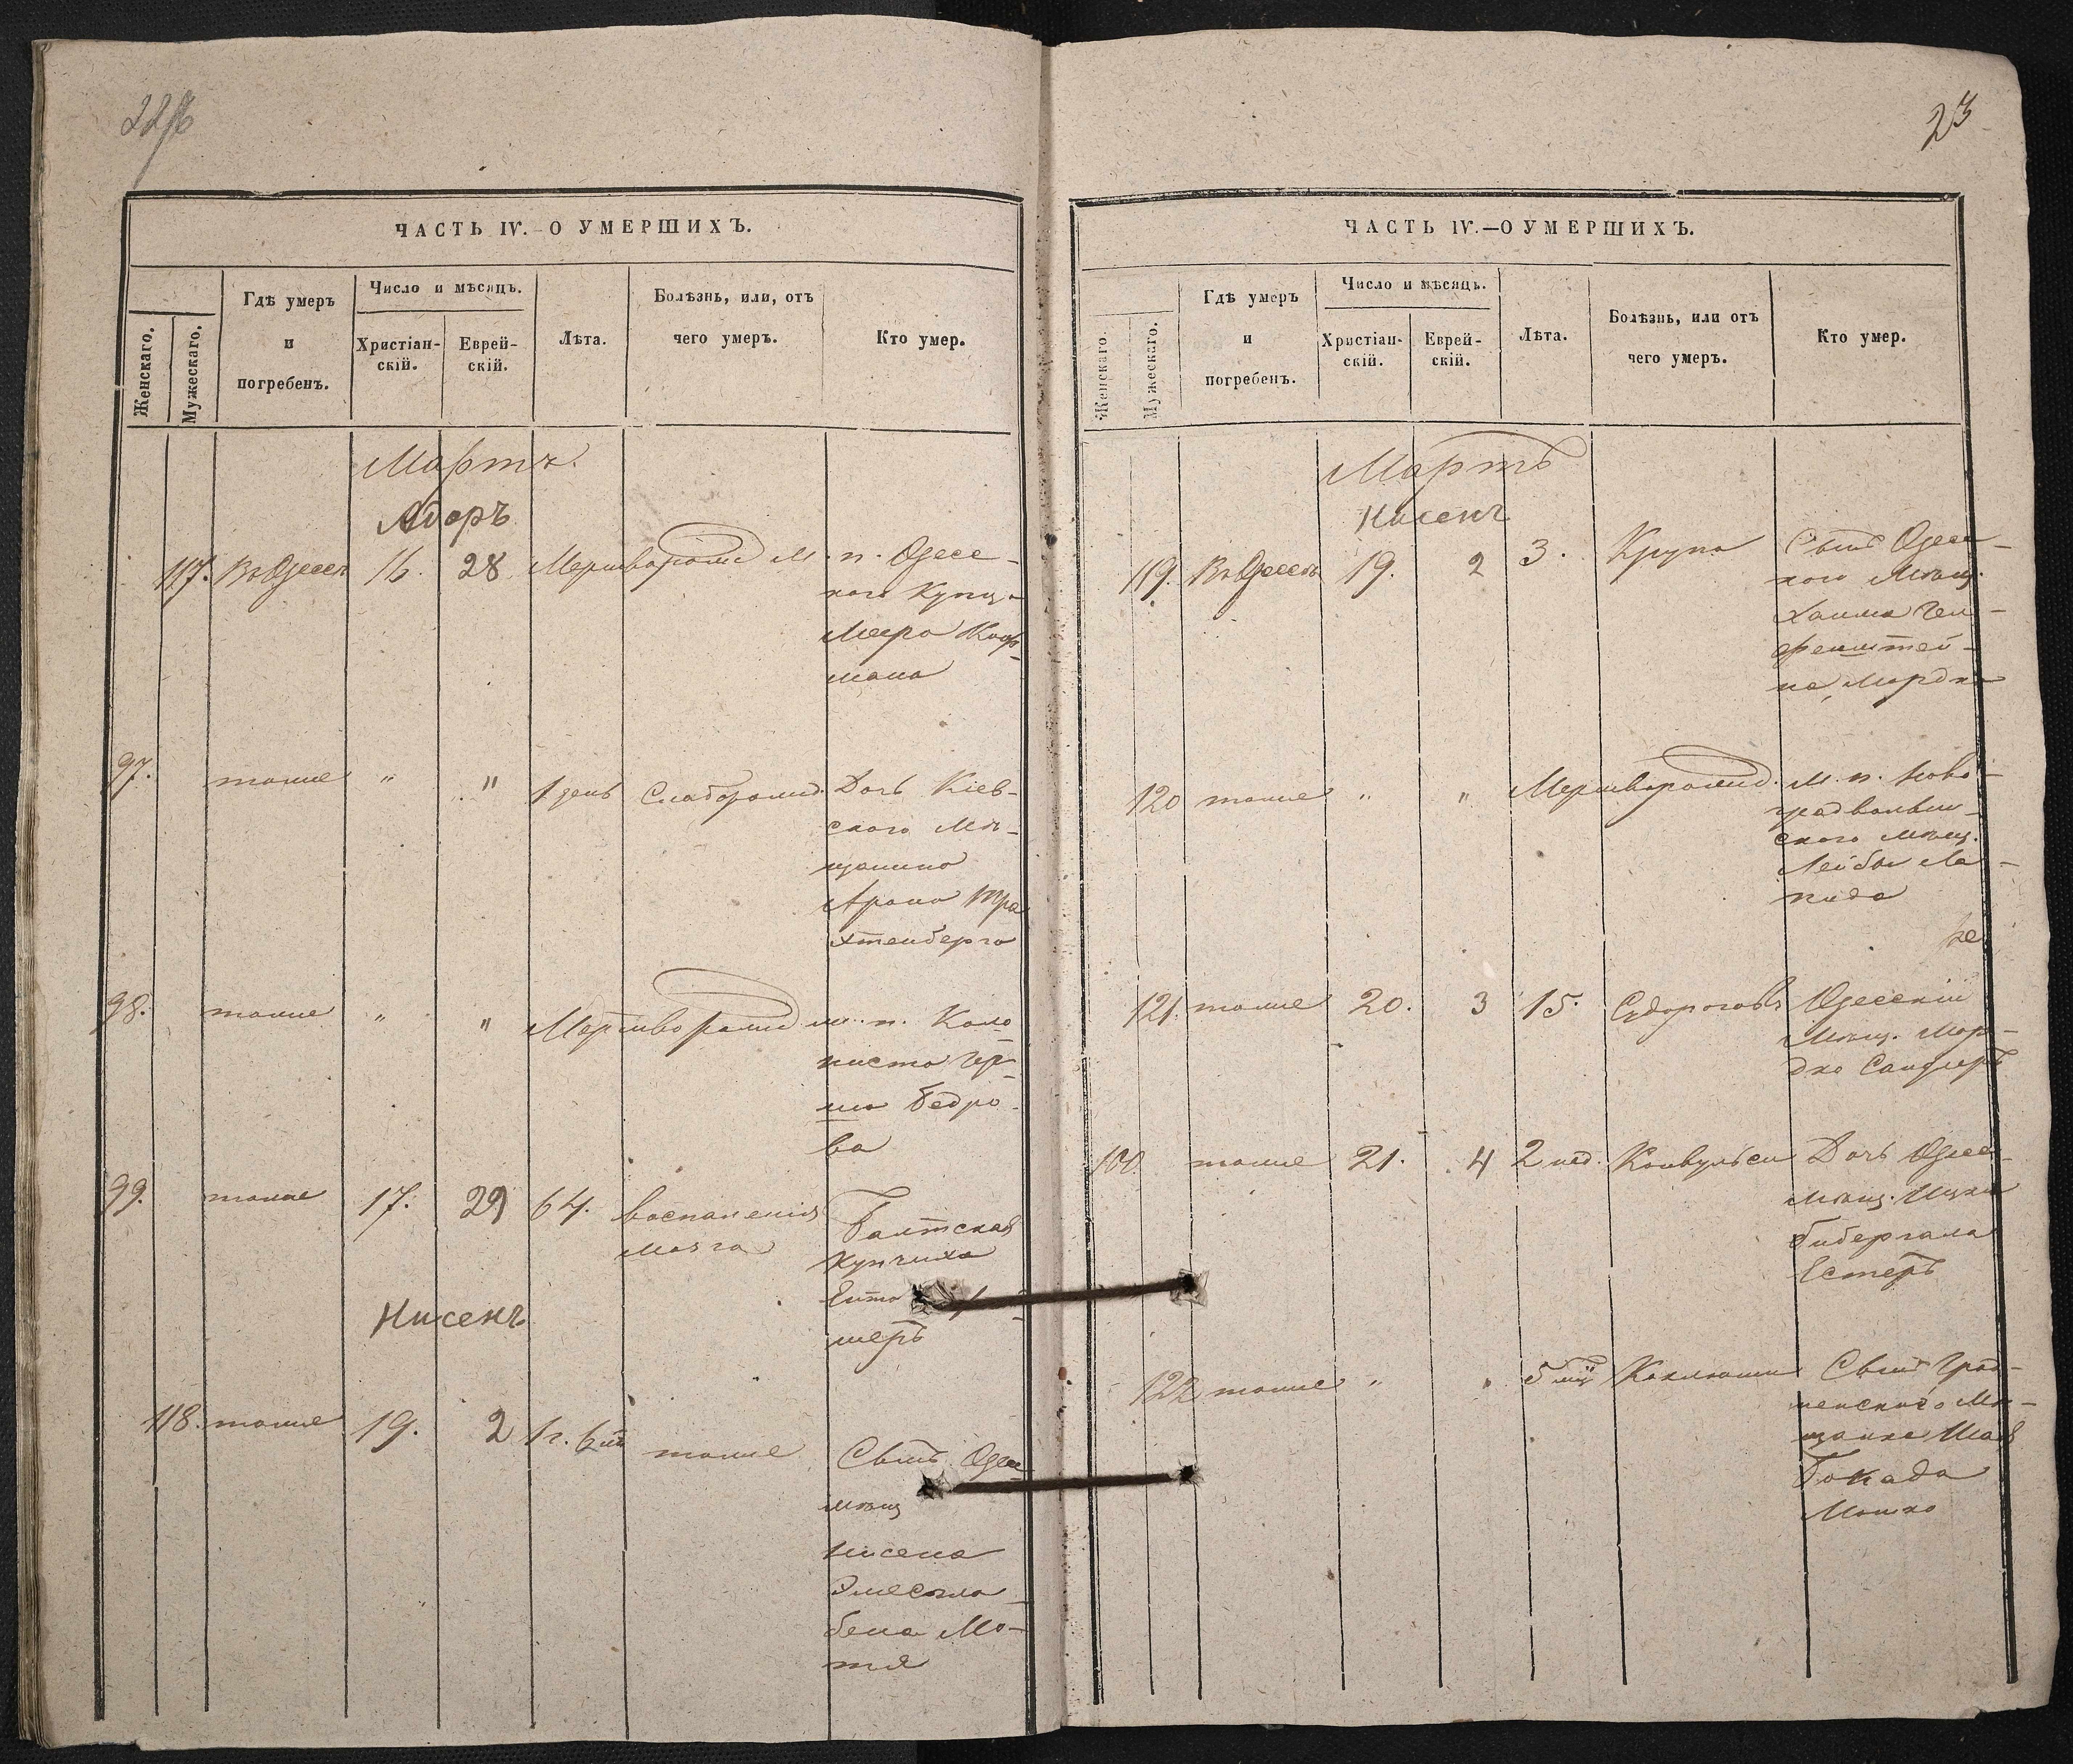 22об
ЧАСТЬ IV.—О УМЕРШИХЪ.
Женскаго.
Мужескаго.
Гдѣ умеръ
и
погребенъ.
Число и мѣсяцъ.
Христіан-
скій.
Еврей-
скій.
Лѣта.
Болѣзнь, или, отъ
чего умеръ.
Кто умер.
Мартъ.
Адаръ
117. Въ Одессѣ 16. 28 Мертворожд м. п. Одесс-
кого Купца
Меера Кауф-
мана
97. тоже " " 1 день Слаборожд. Дочь Кіев-
ского Мѣ-
щанина
Арона Тра
хтенберга
98. тоже " " Мертворожд ж. п. Коло-
ниста
Бедро-
ва
99. тоже 17. 29 64. воспаленія Балтская
мозга купчиха
меръ
Нисенъ
118. тоже 19. 2 1 г. 6 тоже Сынъ Одес
мѣщ
Нисена
бена Мо-
тя
23
ЧАСТЬ IV.—О УМЕРШИХЪ.
Женскаго.
Мужескаго.
Гдѣ умеръ
и
погребенъ.
Число и мѣсяцъ.
Христіан-
скій.
Еврей-
скій.
Лѣта.
Болѣзнь, или отъ
чего умеръ.
Кто умер.
Мартъ
Нисенъ
119. Въ Одессѣ 19. 2 3. Крупа Сынъ Одесс-
кого Мѣщ.
Хаима Гел-
фенштей-
на, Мордко
120 тоже " " Мертворожд. м. п. Ново-
градволын-
ского мѣщ.
Лейбы Ла-
пида
121. тоже 20. 3 15. Судороговъ Одесскій
Мѣщ. Мор-
дко Сандлеръ
100. тоже 21. 4 2 нед. Конвульси Дочь Одесс-
мѣщ. Ицки
Бибергала
Естеръ
122 тоже " " 5 Коклюши Сынъ Грод-
ненского Мѣ-
щанина
Токада
Мошко